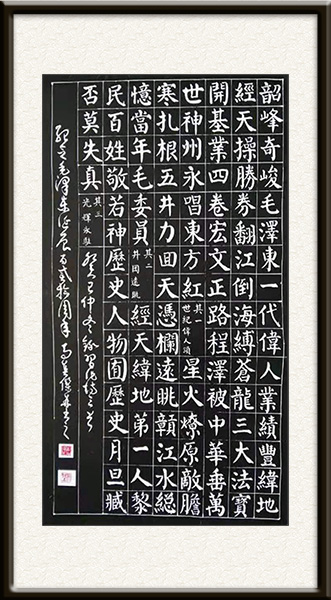 韶峰奇峻毛澤東一代偉人業績豐緯地
經天操勝券翻江倒海縛蒼龍三大法寶
開基業四卷宏文正路程澤被中華垂萬
世神州永唱東方紅
其一
世紀偉人頌
星火燎原敵膽
寒扎根五井力回天憑欄遠眺贛江水縂
憶當年毛委員
其二
井岡遠眺
經天緯地第一人黎
民百姓敬若神歷史人物囿歷史月旦臧
否莫失真
其三
光輝永駐
癸巳仲冬
毛澤東诞辰百弍拾周年